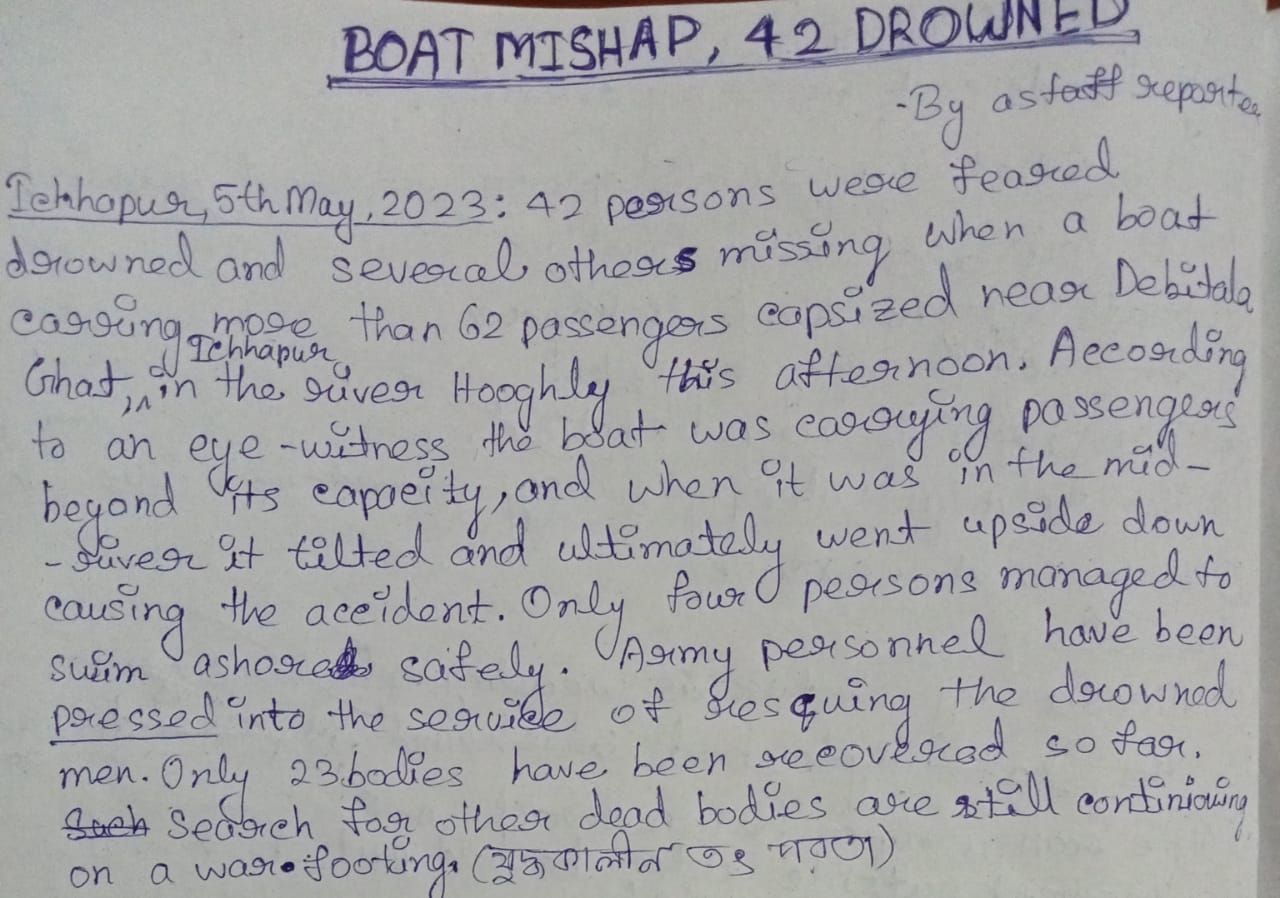 BOAT MISHAP, 42 DROWNED
-By a staff reporter
Ichhapur, 5th May, 2023: 42 persons were feared
drowned and several others missing when a boat
carring more than 62 passengers capsized near Debitala
Ichhapur
Ghat, in the river Hooghly this afternoon. According
to an eye-witness the boat was carrying passengers
beyond its capacity, and when it was in the mid-
-river it tilted and ultimately went upside down
causing the accident. Only four persons managed to
swim ashore safely. Army personnel have been
pressed into the service of resquing the drowned
men. Only 23 bodies have been recovered so far.
Such Search for other dead bodies are still continiouing
on a war-footing. (যুদ্ধকালীন তৎপরতা)